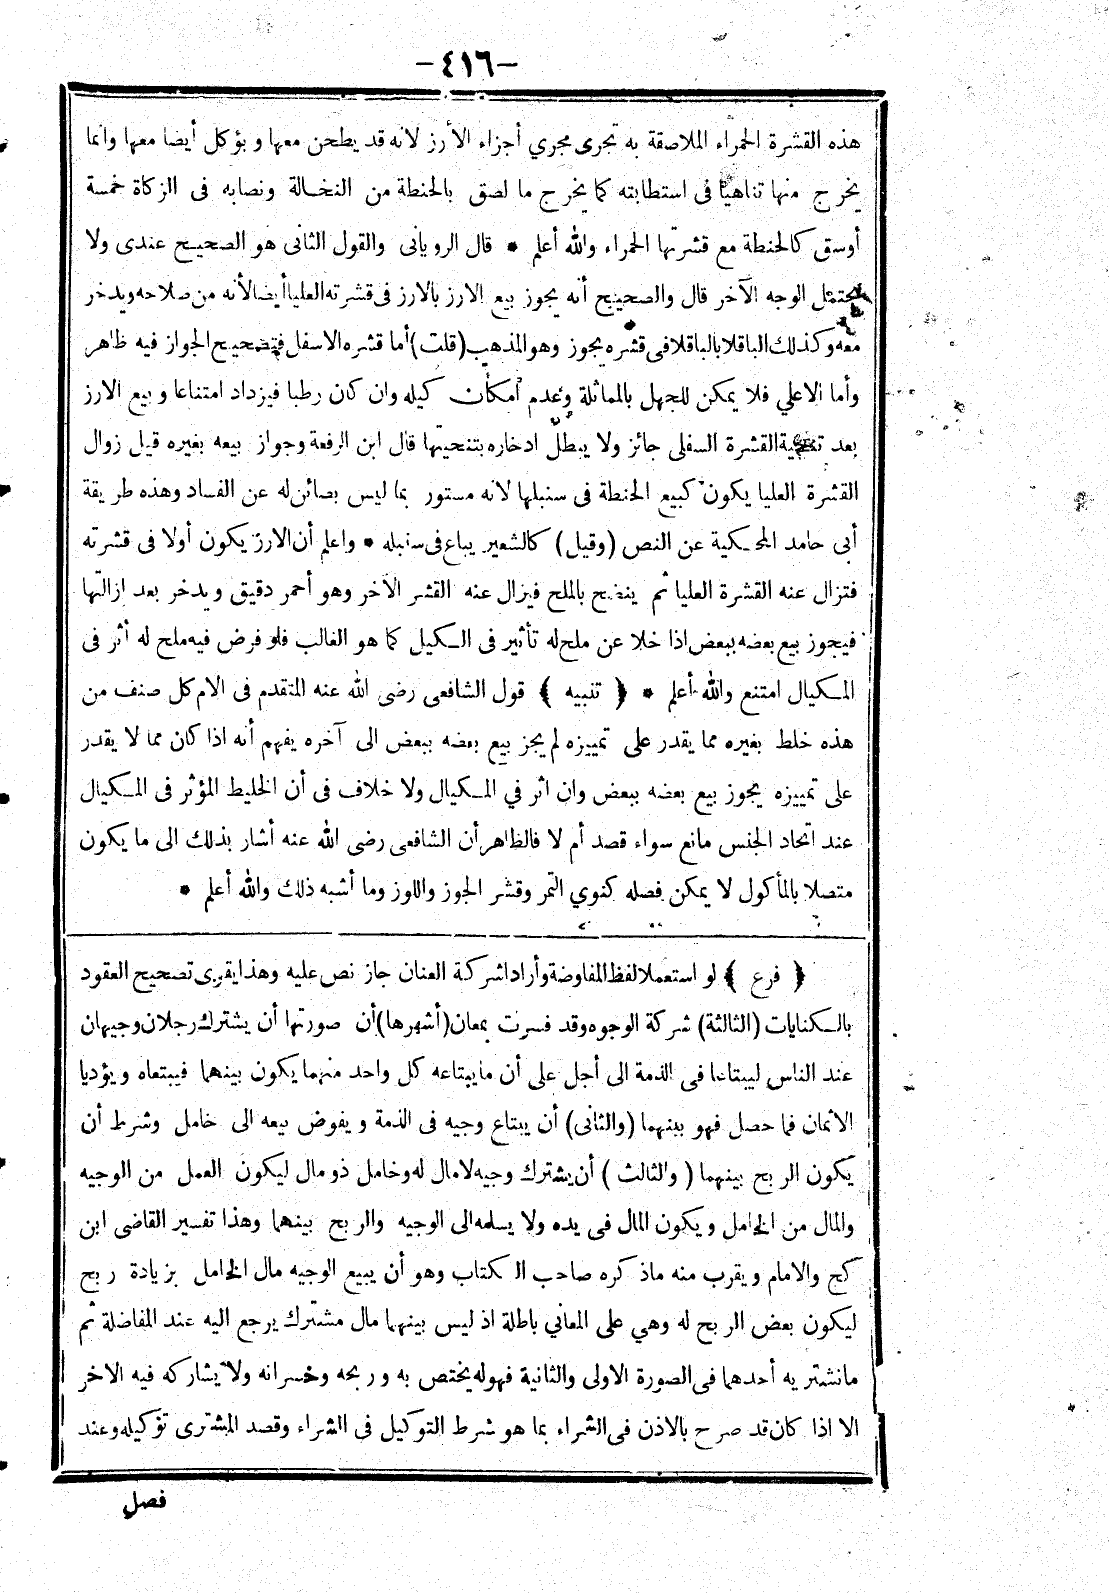 -٤١٦-
هذه القشرة الحمراء الملاصقة به تجرى مجري أجزاء الأرز لانه قد يطحن معها ويؤكل أيضا معها وانما
يخرج منها تناهيا فى استطابته كما يخرج ما لصق بالحنطة من النخالة ونصابه فى الزكاة خمسة
أوسق كالحنطة مع قشرتها الحمراء والله أعلم * قال الرويانى والقول الثانى هو الصحيح عندى ولا
يحتمل الوجه الآخر قال والصحيح أنه يجوز بيع الارز بالارز فى قشرته العليا أيضا لأنه من صلاحه ويدخر
معه وكذلك الباقلا بالباقلا فى قشره يجوز وهو المذهب (قلت) أما قشره الاسفل فتصحيح الجواز فيه ظاهر
وأما الاعلي فلا يمكن للجهل بالمماثلة وعدم امكان كيله وان كان رطبا فيزداد امتناعا وبيع الارز
بعد تنحية القشرة السفلى جائز ولا يبطل ادخاره بتنحيتها قال ابن الرفعة وجواز بيعه بغيره قبل زوال
القشرة العليا يكون كبيع الحنطة فى سنبلها لانه مستور بما ليس بصائن له عن الفساد وهذه طريقة
أبى حامد المحكية عن النص (وقيل) كالشعير يباع فى سنبله * واعلم أن الارز يكون أولا فى قشرته
فتزال عنه القشرة العليا ثم ينضح بالملح فيزال عنه القشر الآخر وهو أحمر دقيق ويدخر بعد ازالتها
فيجوز بيع بعضه ببعض اذا خلا عن ملح له تأثير فى الكيل كما هو الغالب فلو فرض فيه ملح له أثر فى
المكيال امتنع والله أعلم * ﴿ تنبيه ﴾ قول الشافعى رضى الله عنه المتقدم فى الام كل صنف من
هذه خلط بغيره مما يقدر على تمييزه لم يجز بيع بعضه ببعض الى آخره يفهم أنه اذا كان مما لا يقدر
على تمييزه يجوز بيع بعضه ببعض وان اثر في المكيال ولا خلاف فى أن الخليط المؤثر فى المكيال
عند اتحاد الجنس مانع سواء قصد أم لا فالظاهر أن الشافعى رضى الله عنه أشار بذلك الى ما يكون
متصلا بالمأكول لا يمكن فصله كنوي التمر وقشر الجوز واللوز وما أشبه ذلك والله أعلم *
﴿ فرع ﴾ لو استعملا لفظ المفاوضة وأرادا شركة العنان جاز نص عليه وهذا يقوى تصحيح العقود
بالكنايات (الثالثة) شركة الوجوه وقد فسرت بمعان (أشهرها) أن صورتها أن يشترك رجلان وجيهان
عند الناس ليبتاعا فى الذمة الى أجل على أن ما يبتاعه كل واحد منهما يكون بينهما فيبتعاه ويؤديا
الاثمان فما حصل فهو بينهما (والثانى) أن يبتاع وجيه فى الذمة ويفوض بيعه الى خامل وشرط أن
يكون الربح بينهما (والثالث) أن يشترك وجيه لا مال له وخامل ذو مال ليكون العمل من الوجيه
والمال من الخامل ويكون المال فى يده ولا يسلمه الى الوجيه والربح بينهما وهذا تفسير القاضى ابن
كج والامام ويقرب منه ما ذكره صاحب الكتاب وهو أن يبيع الوجيه مال الخامل بزيادة ربح
ليكون بعض الربح له وهي على المعاني باطلة اذ ليس بينهما مال مشترك يرجع اليه عند المفاضلة ثم
مانشتريه أحدهما فى الصورة الاولى والثانية فهو له يختص به وربحه وخسرانه ولا يشاركه فيه الاخر
الا اذا كان قد صرح بالاذن فى الشراء بما هو شرط التوكيل فى الشراء وقصد المشترى توكيله وعند
فصل